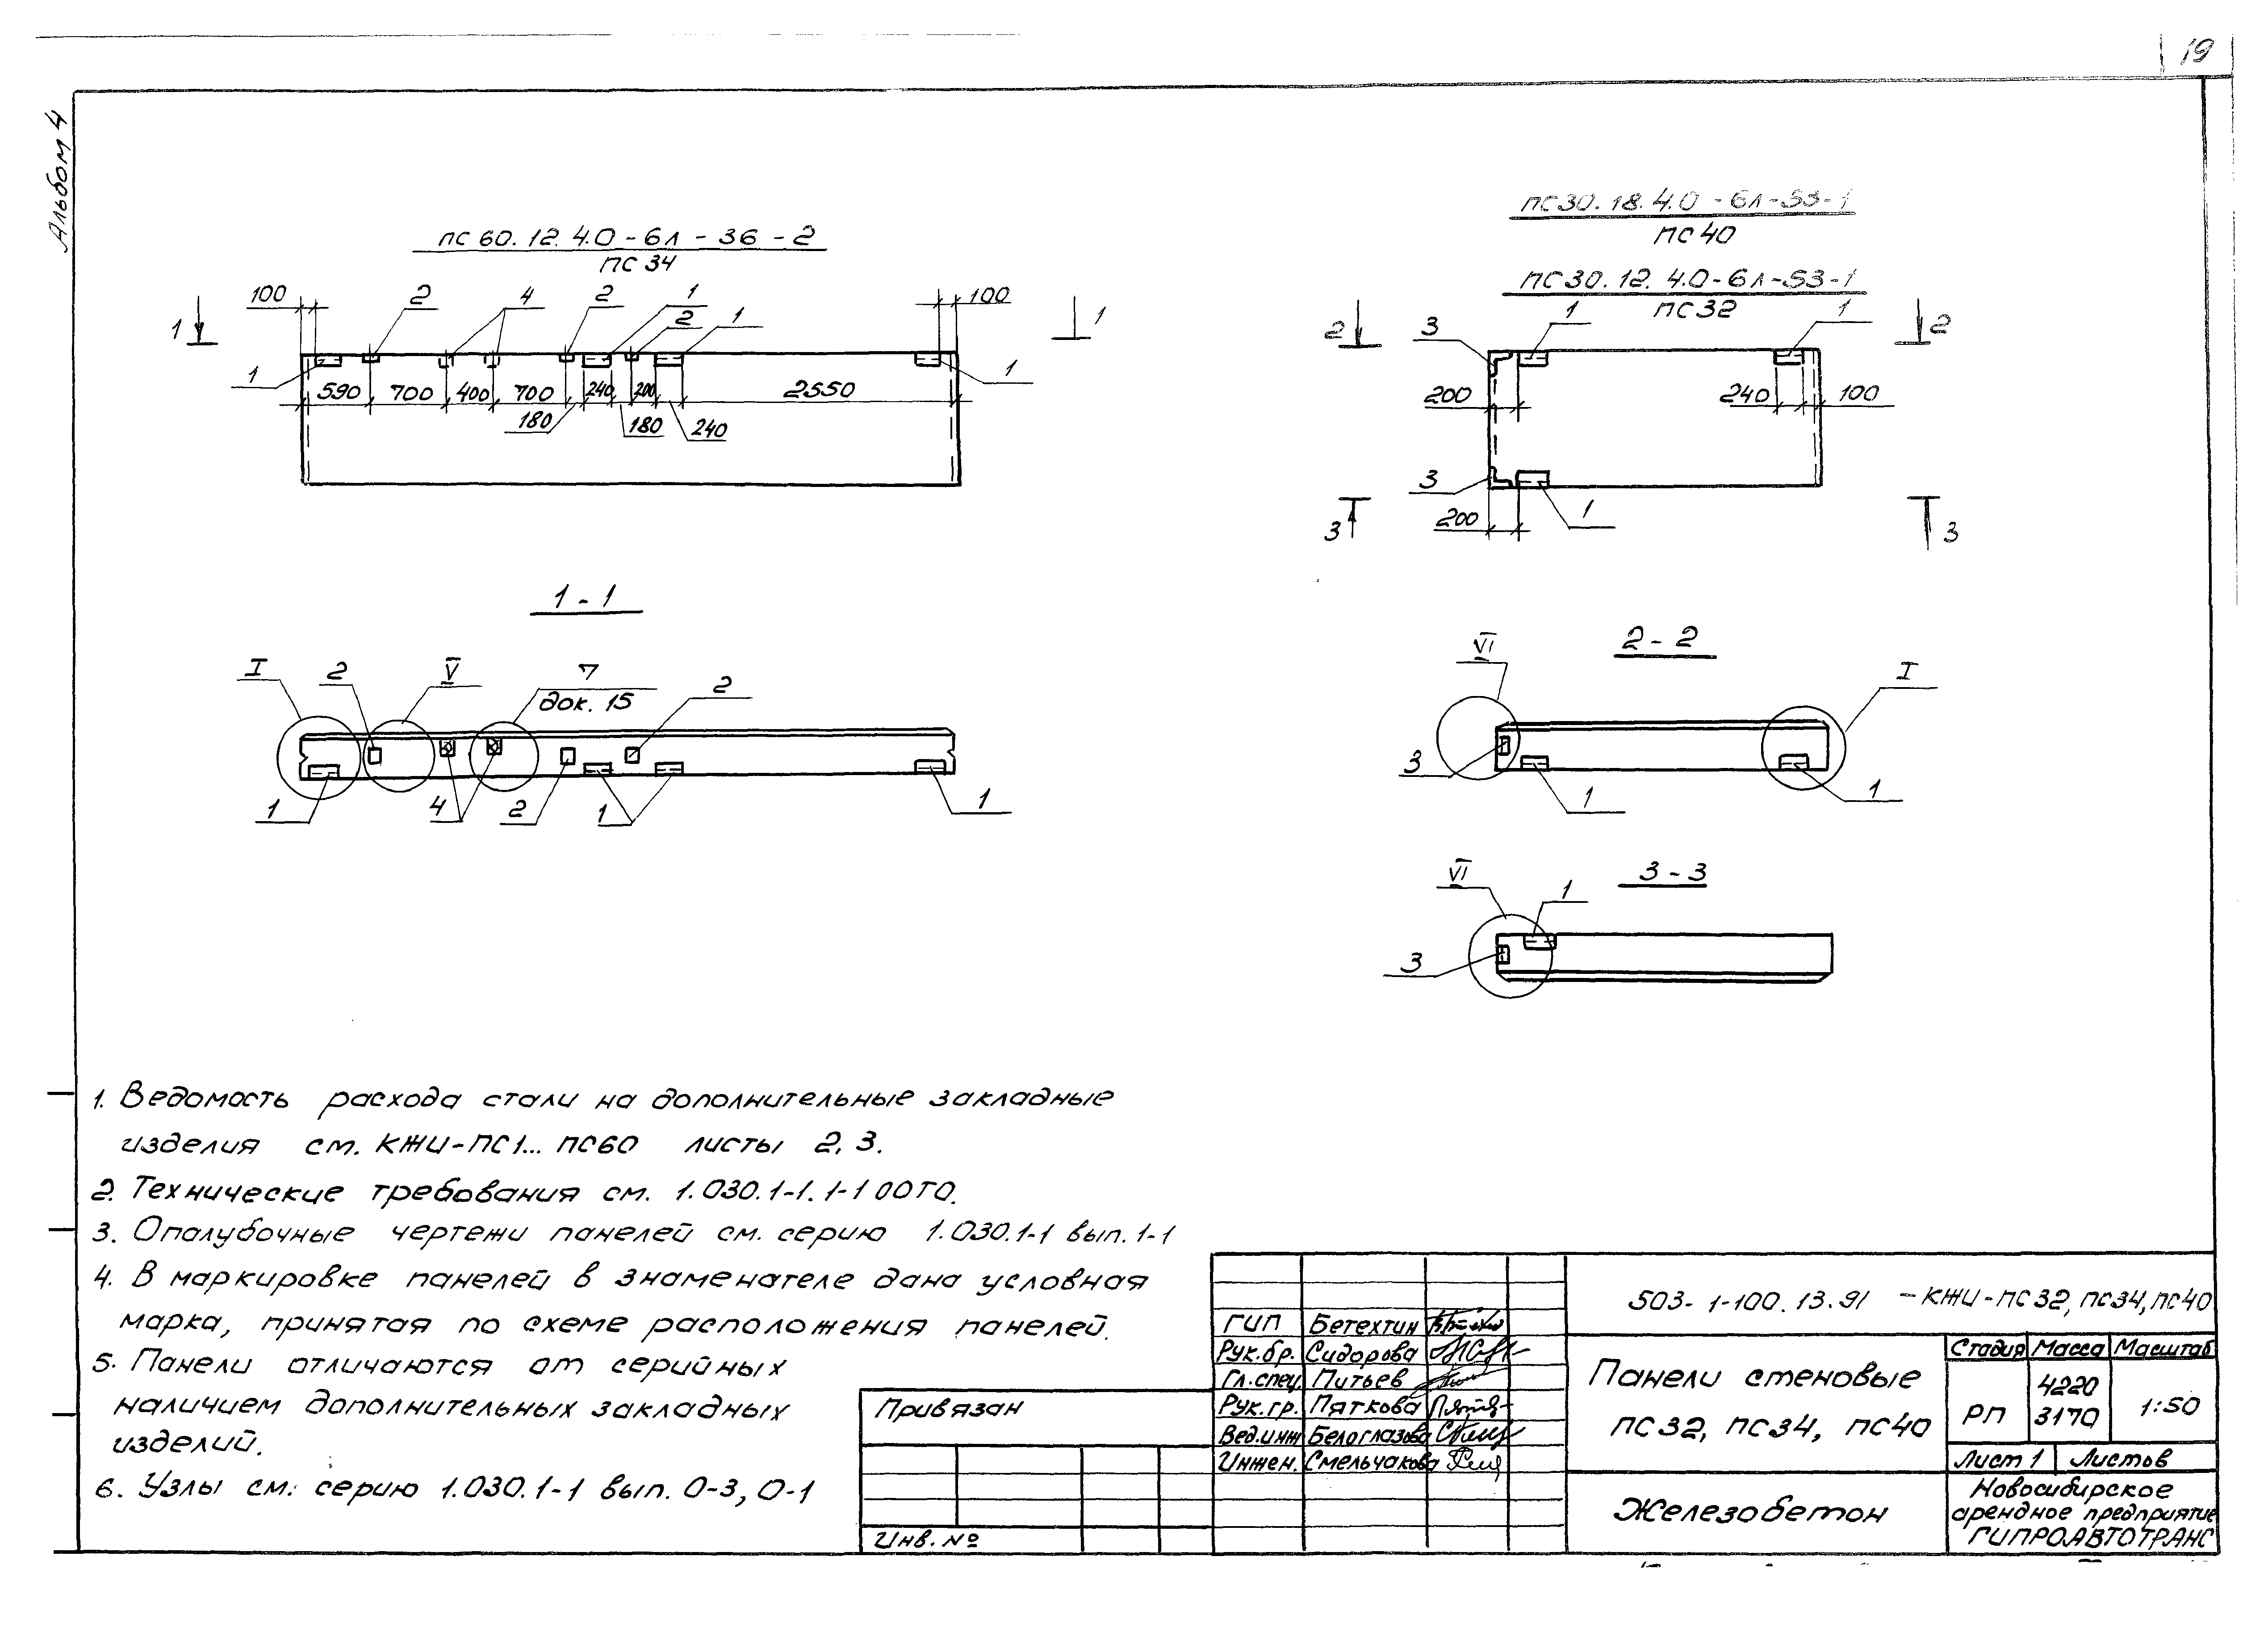 19
Альбом 4
пс 60.12.4.0-6л-36-2
ПС 34
100 2 4 2 1 2 1 100
1 1
1 1
590 700 400 700 240 200 2550
180 180 240
1-1
I 2 V 7 2
док. 15
1 4 2 1 1
пс30.18.4.0-6л-53-1
пс 40
пс30.12.4.0-6л-53-1
пс 32
2 3 1 1 2
200 240 100
3 1
3 200 3
2-2
VI I
3 1 1
3-3
VI 1
3
1. Ведомость расхода стали на дополнительные закладные
изделия см. КЖИ-ПС1... ПС60 листы 2, 3.
2. Технические требования см. 1.030.1-1.1-1 00ТО.
3. Опалубочные чертежи панелей см. серию 1.030.1-1 вып. 1-1
4. В маркировке панелей в знаменателе дана условная
марка, принятая по схеме расположения панелей.
5. Панели отличаются от серийных
наличием дополнительных закладных
изделий.
6. Узлы см. серию 1.030.1-1 вып. 0-3, 0-1
Привязан
Инв. №
ГИП Бетехтин
Рук.бр. Сидорова
Гл.спец. Питьев
Рук.гр. Пяткова
Вед.инж Белоглазова
Инжен. Смельчакова
503-1-100.13.91 -КЖИ-ПС32, ПС34, ПС40
Панели стеновые
ПС32, ПС34, ПС40
Стадия Масса Масштаб
РП 4220 1:50
3170
Лист 1 Листов
Железобетон
Новосибирское
арендное предприятие
ГИПРОАВТОТРАНС